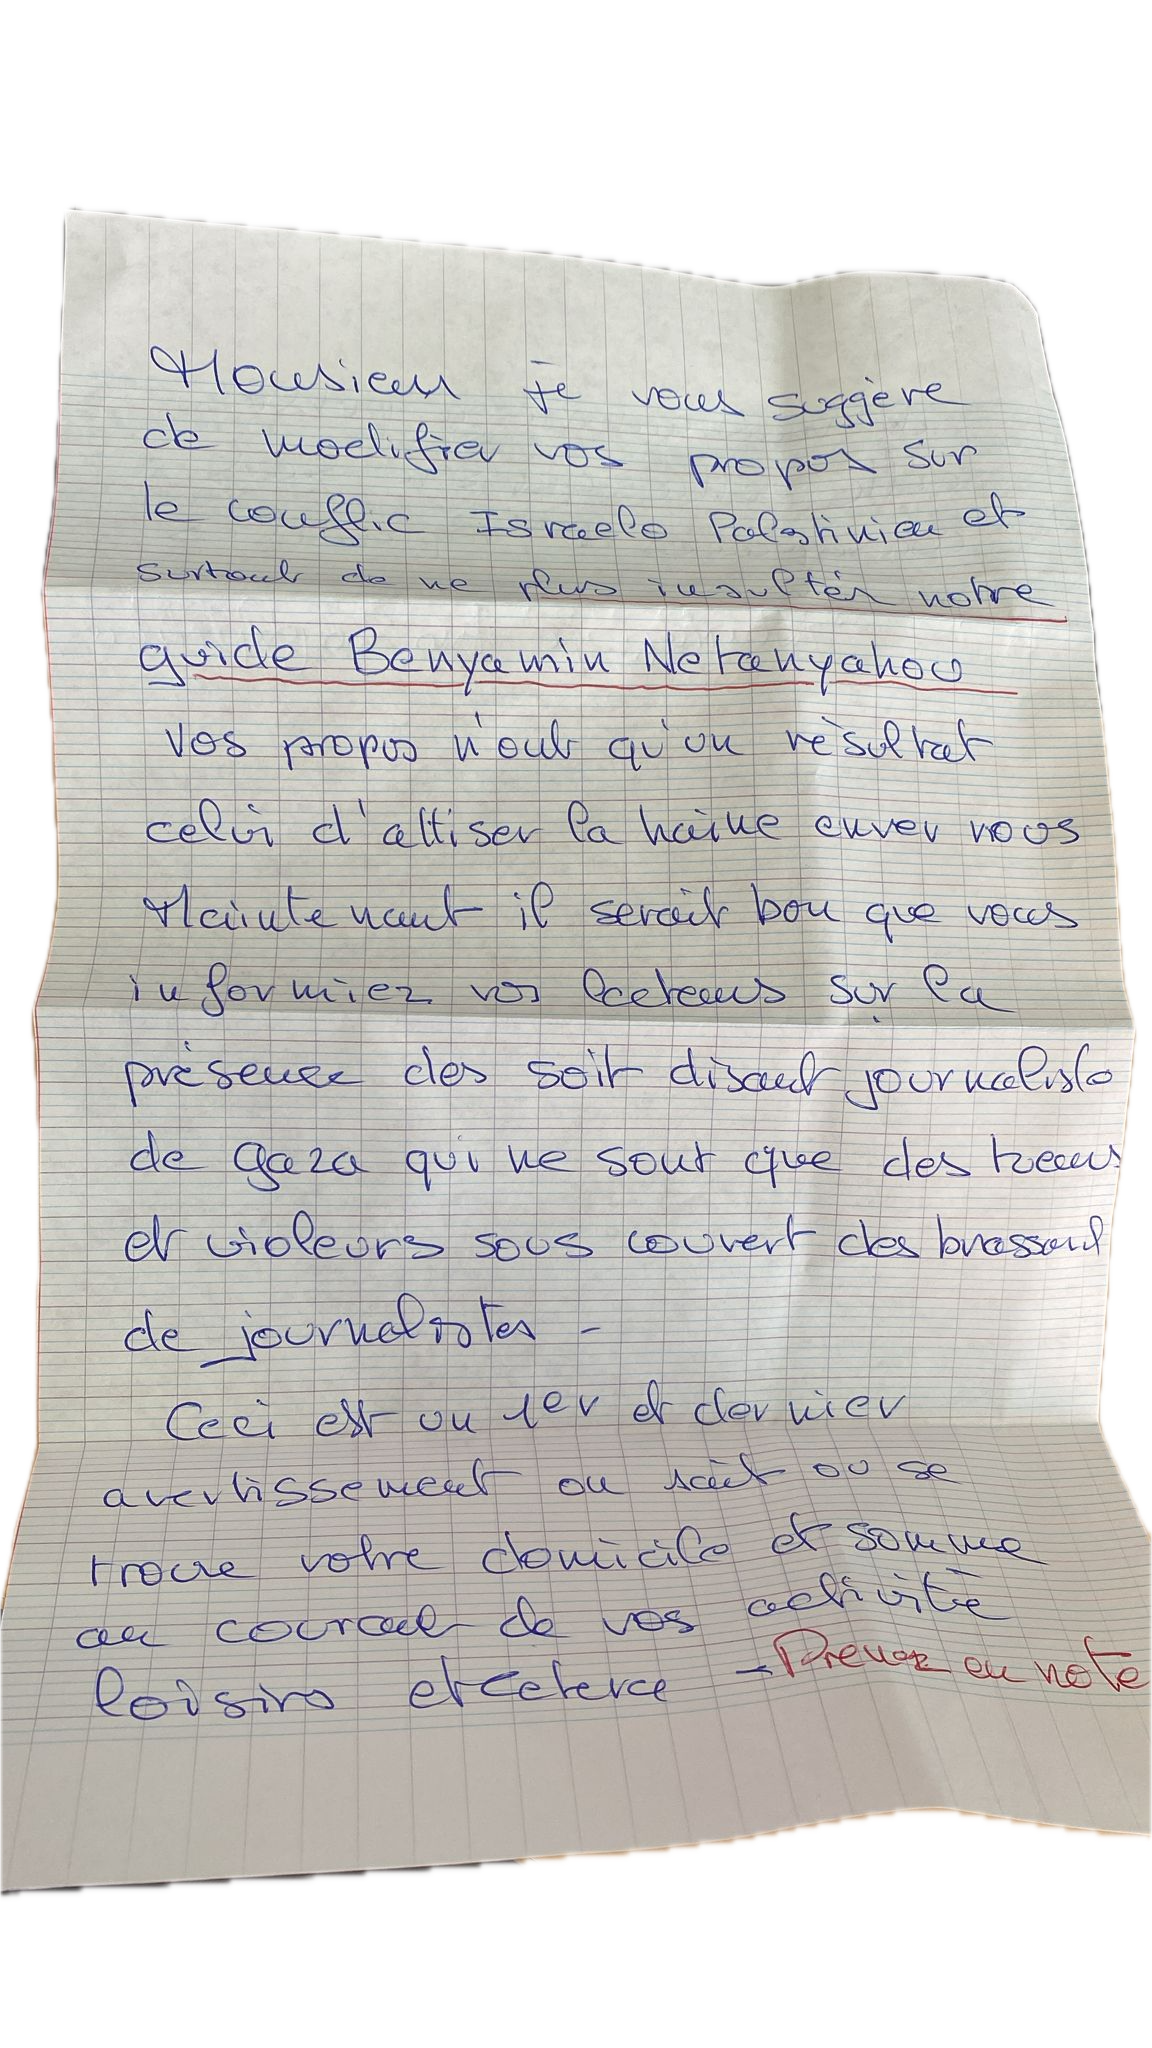 Monsieur je vous suggère
de modifier vos propos sur
le conflic Israelo Palestinien et
surtout de ne plus insulter notre
guide Benyamin Netanyahou
Vos propos n'ont qu'un résultat
celui d'attiser la haine enver vous
Maintenant il serait bon que vous
informiez vos lecteurs sur la
présence des soit disant journaliste
de gaza qui ne sont que des tueurs
et violeurs sous couvert des brassard
de journalistes -
Ceci est un 1er et dernier
avertissement on sait ou se
trouve votre domicile et somme
au courant de vos activité
loisirs etcetera - Prenez en note